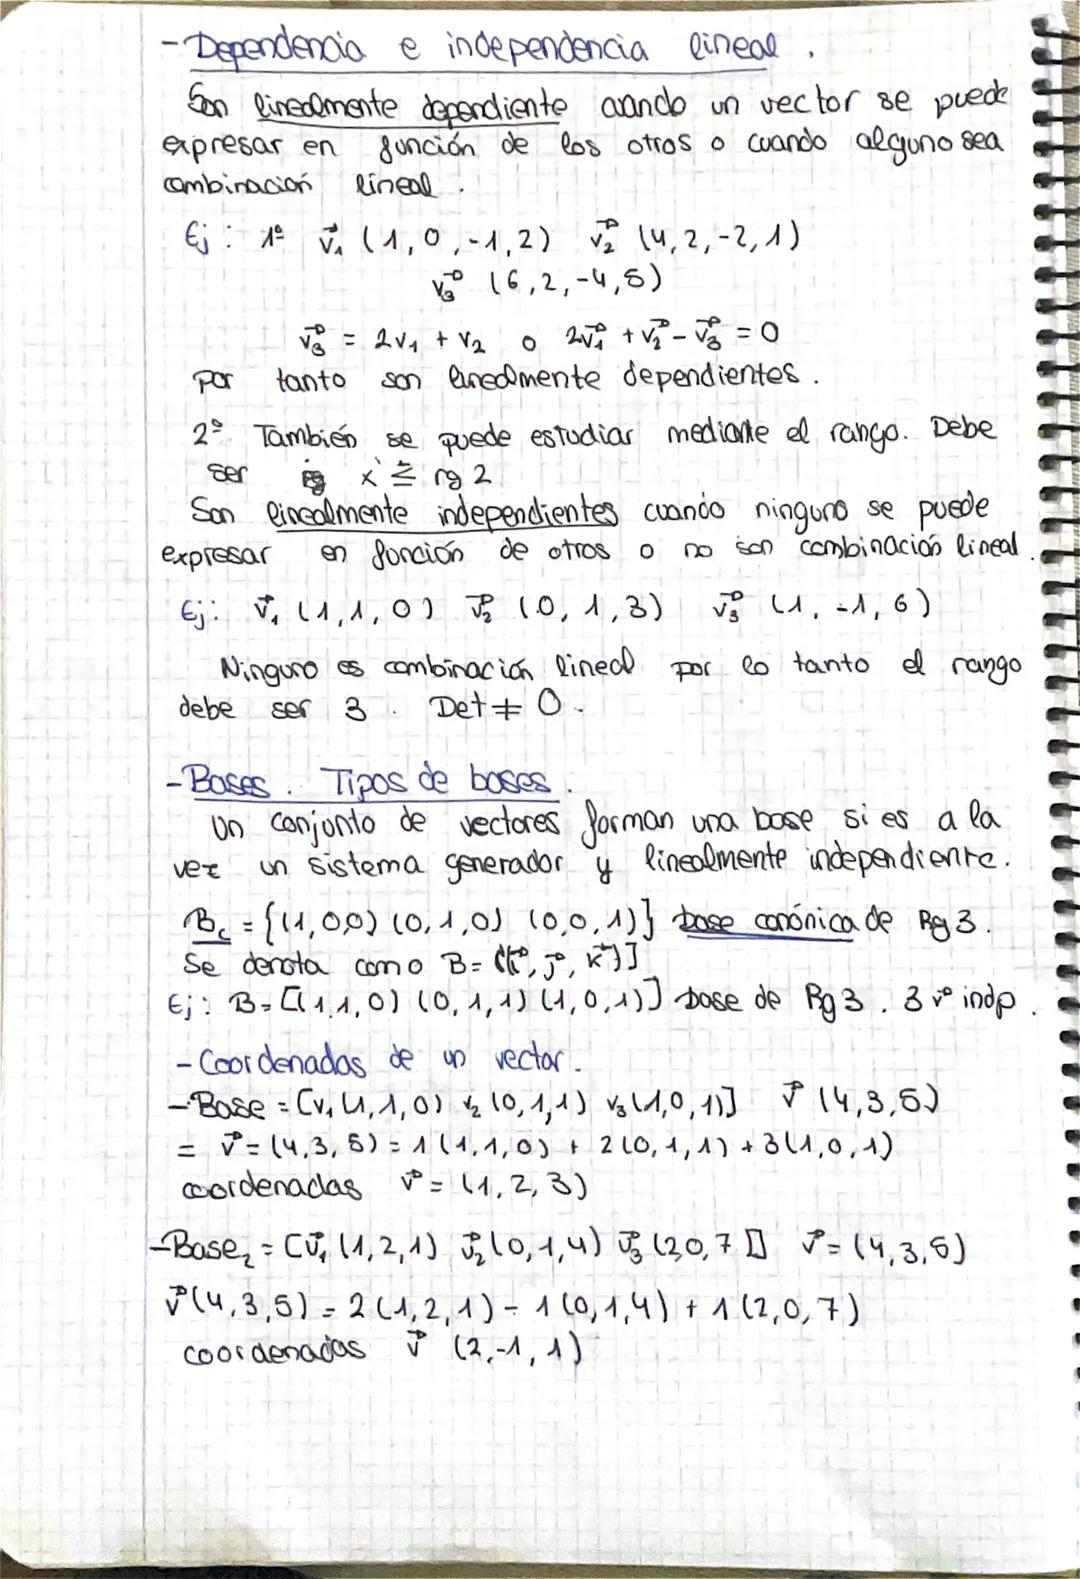 - Dependencia e independencia lineal.
Son linealmente dependiente cuando un vector se puede
expresar en función de los otros o cuando alguno sea
combinación lineal.
Ej: 1º v₁ (1,0,-1,2) v₂ (4,2,-2,1)
v₃ (6,2,-4,5)
v₃ = 2v₁ + v₂ o 2v₁ + v₂ - v₃ = 0
por tanto son linealmente dependientes.
2º También se puede estudiar mediante el rango. Debe
ser x ≤ rg 2
Son linealmente independientes cuando ninguno se puede
expresar en función de otros o no son combinación lineal.
Ej: v₁ (1,1,0) v₂ (0,1,3) v₃ (1,-1,6)
Ninguno es combinación lineal por lo tanto el rango
debe ser 3. Det ≠ 0.
- Bases. Tipos de bases.
Un conjunto de vectores forman una base si es a la
vez un sistema generador y linealmente independiente.
Bc = {(1,0,0) (0,1,0) (0,0,1)} base canónica de Rg 3.
Se denota como B = {(i, j, k)]
Ej: B = [(1,1,0) (0,1,1) (1,0,1)] base de Rg 3. 3 v indp.
- Coordenadas de un vector.
- Base = [v₁ (1,1,0) v₂ (0,1,1) v₃ (1,0,1)] v (4,3,5)
= v = (4,3,5) = 1(1,1,0) + 2(0,1,1) + 3(1,0,1)
coordenadas v = (1,2,3)
- Base₂ = [v₁ (1,2,1) v₂ (0,1,4) v₃ (2,0,7)] v = (4,3,5)
v (4,3,5) = 2(1,2,1) - 1(0,1,4) + 1(2,0,7)
coordenadas v (2,-1,1)